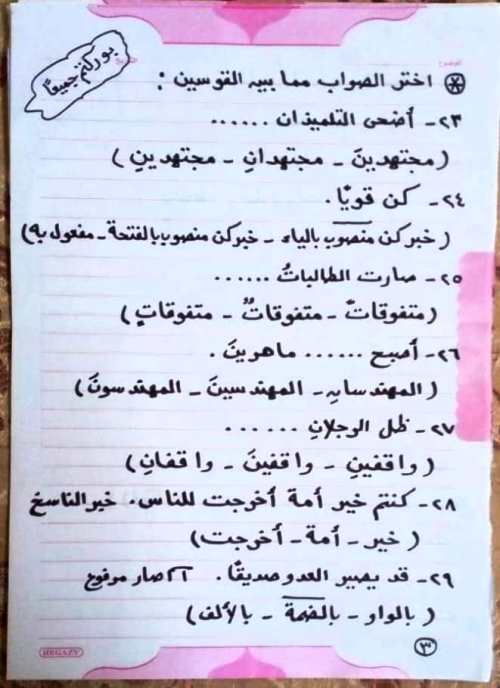 بوركتم جميعًا
الموضوع
التاريخ
* اختر الصواب مما بين القوسين :
٢٣- أضحى التلميذان ......
( مجتهدينَ - مجتهدانِ - مجتهدينِ )
٢٤- كن قويًا .
( خبر كن منصوب بالياء - خبر كن منصوب بالفتحة - مفعول به )
٢٥- صارت الطالباتُ ......
( متفوقاتً - متفوقاتٌ - متفوقاتٍ )
٢٦- أصبح ...... ماهرينَ .
( المهندسانِ - المهندسينَ - المهندسونَ )
٢٧- ظل الرجلانِ ......
( واقفينِ - واقفينَ - واقفانِ )
٢٨- كنتم خير أمة أخرجت للناس . خبر الناسخ
( خير - أمة - أخرجت )
٢٩- قد يصير العدو صديقًا . اسم صار مرفوع
( بالواو - بالضمة - بالألف )
HEGAZY
٣